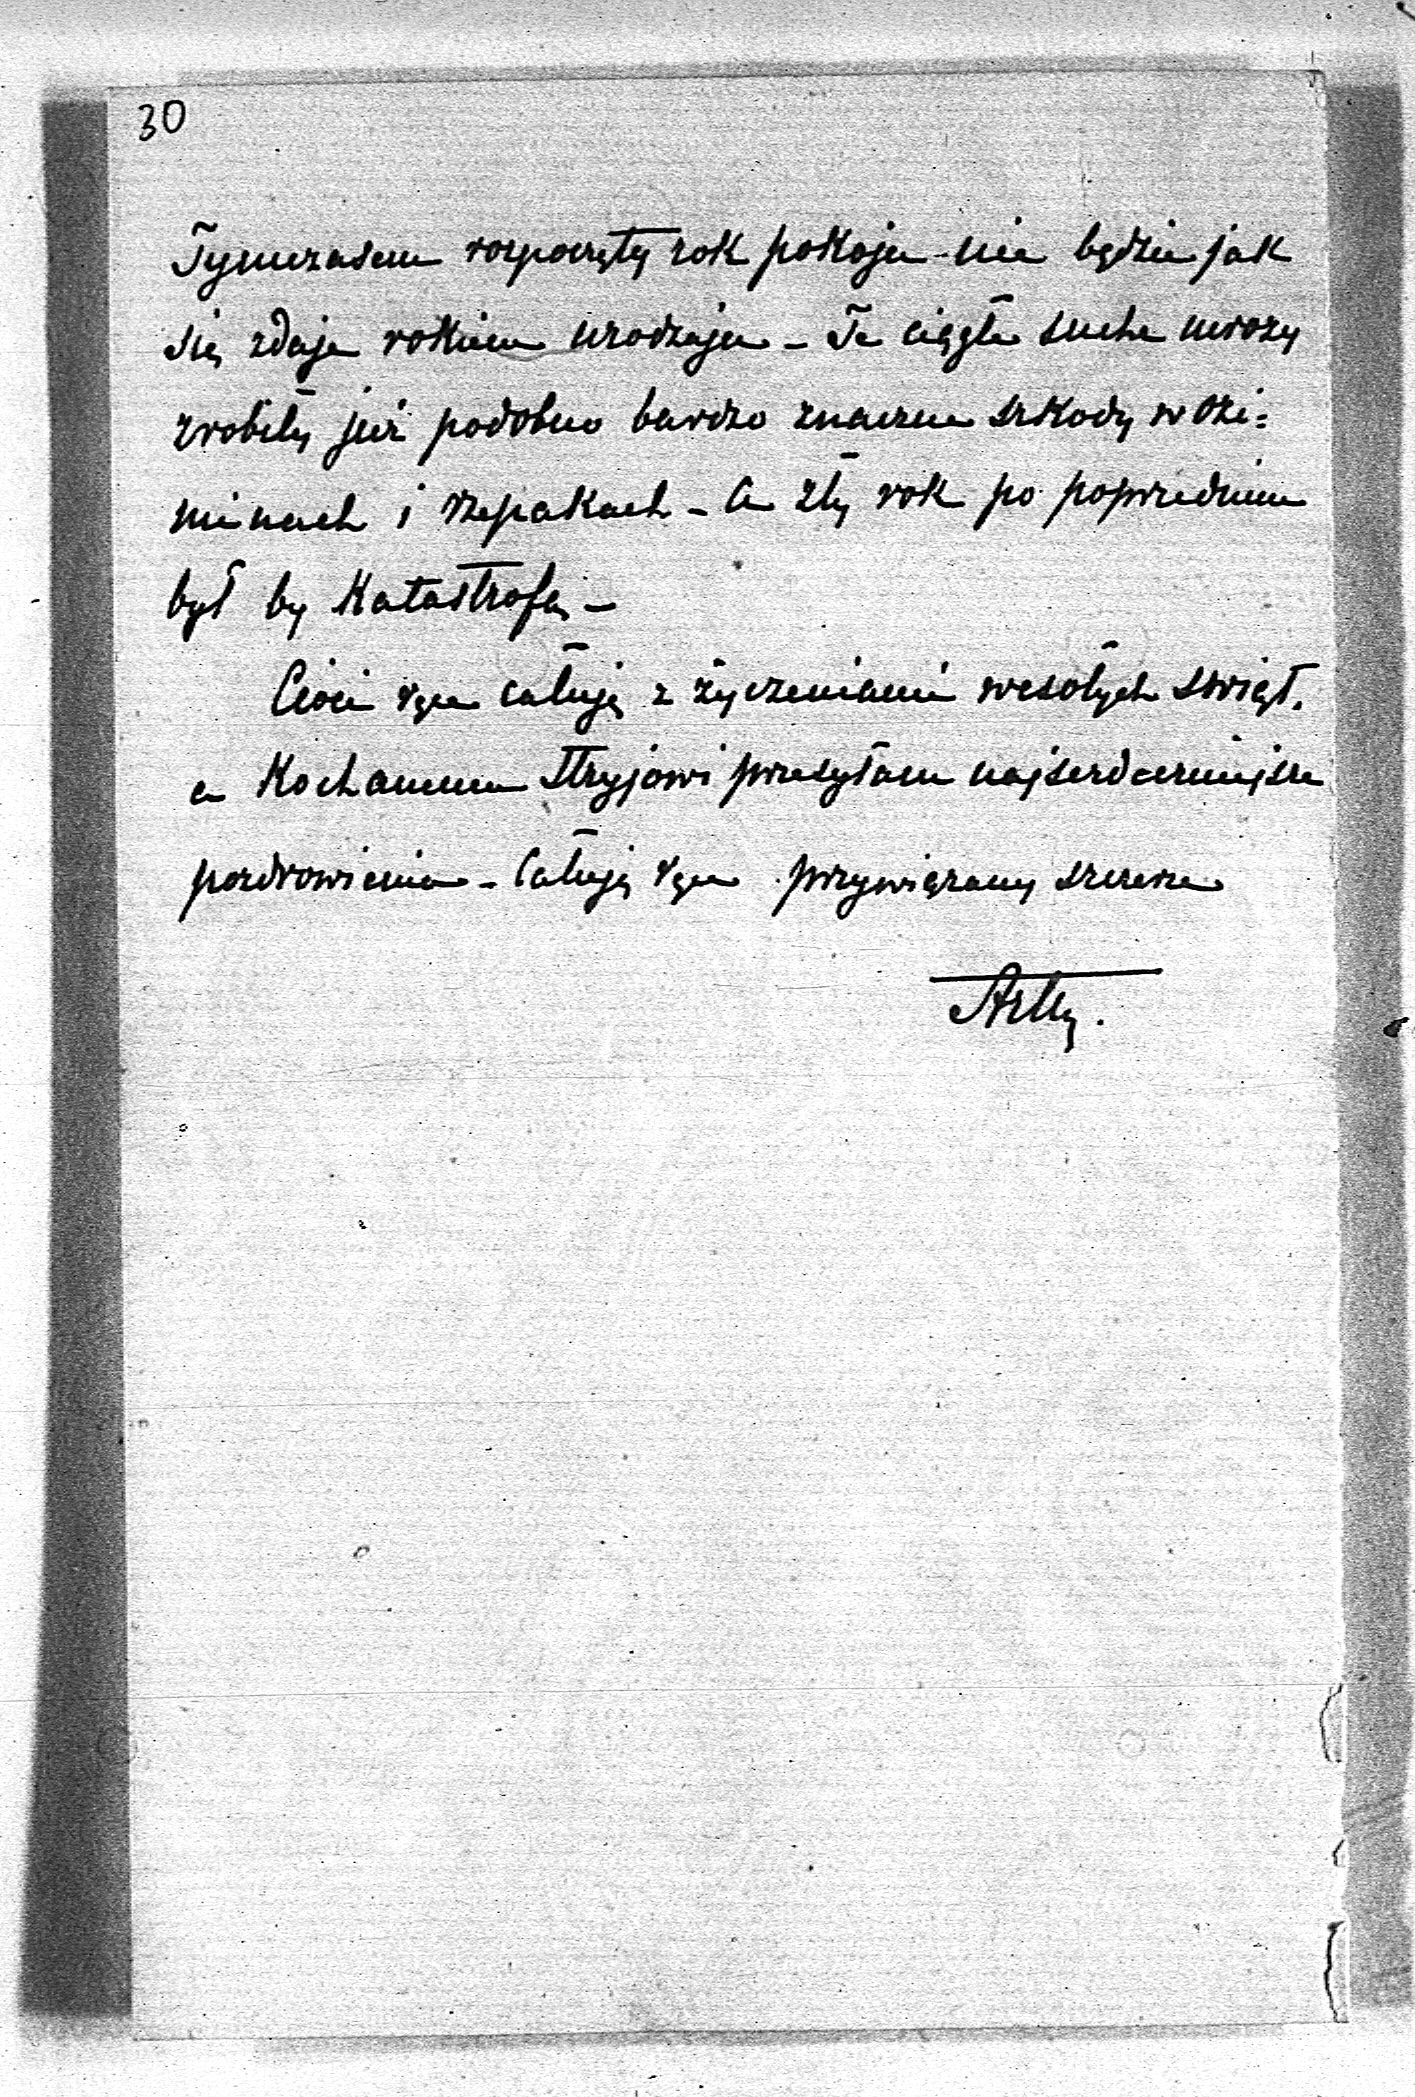 30
Tymczasem rozpoczęty rok pokoju nie będzie jak
się zdaje rokiem urodzaju – Te ciągłe suche mrozy
zrobiły już podobno bardzo znaczne szkody w ozi=
minach i rzepakach – A zły rok po poprzednim
był by katastrofą –
Cioci ręce całuję z życzeniami wesołych świąt.
a Kochanemu Stryjowi przesyłam najserdeczniejsze
pozdrowienia – Całuję ręce przywiązany szczerze